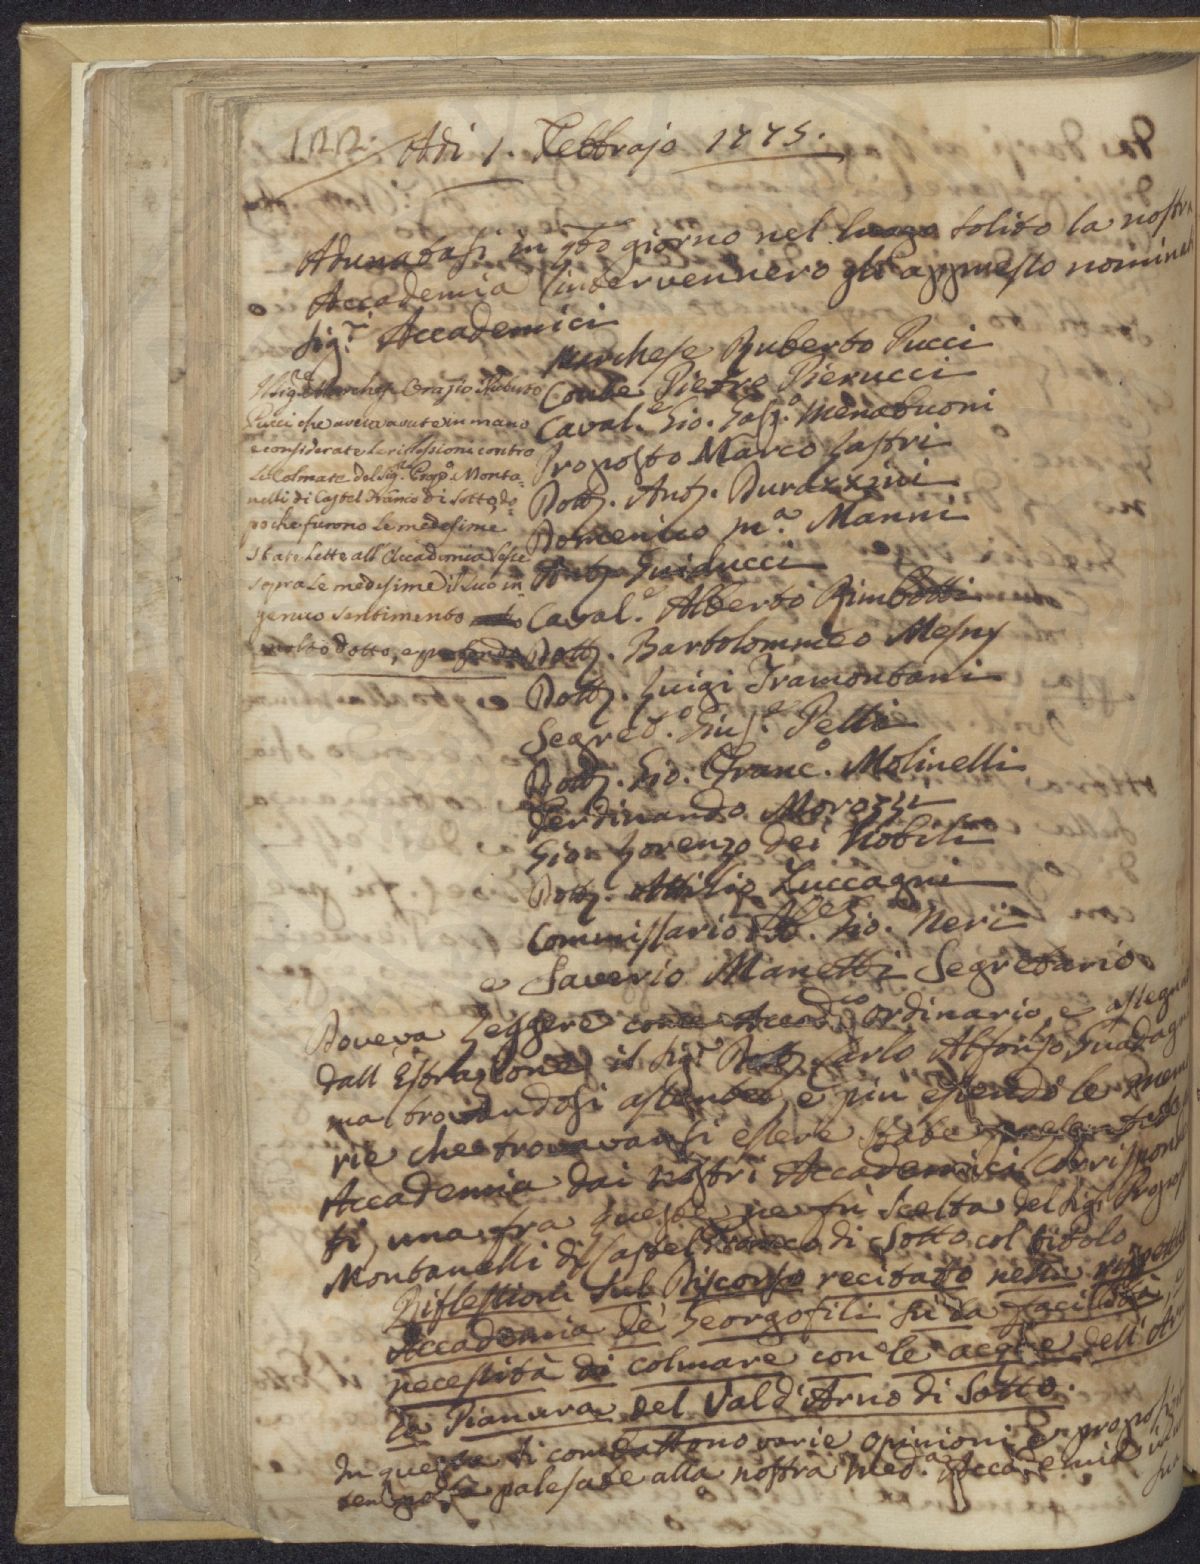 122. Adi 1. Febbrajo 1775.
Adunatasi in qto giorno nel luogo solito la nostra
Accademia v'intervennero gli appresso nominati
Sig.ri Accademici
Marchese Ruberto Pucci
Conte Pietro Pierucci
Caval.e Gio. Gasp.o Menabuoni
Proposto Marco Lastri
Dott. Ant. Durazzini
Domenico M.a Manni
Ant. Guiducci
Caval.e Alberto Rimbotti
Dott. Bartolommeo Mesny
Dott. Luigi Tramontani
Segret.o Gius.e Pelli
Dott. Gio. Franc.o Molinelli
Ferdinando Morozzi
Gio. Lorenzo dei Nobili
Dott. Attilio Zuccagni
Commissario Gio. Neri
e Saverio Manetti Segretario
Il Sig.e Marchese Orazio Ruberto
Pucci che aveva avute in mano
e considerate le riflessioni contro
le Colmate del Sig.e Prop.o Monta-
nelli di Castel Franco di Sotto, do-
po che furono le medesime
state lette all'Accademia lesse
sopra le medesime il suo in-
genuo sentimento
molto dotto, e
Doveva leggere come Accad.co ordinario, e assegnato
dall'Estrazione, il Sig.r Dott. Carlo Alfonso Guadagni
ma trovandosi assente, e più essendo le memo
rie che trovavansi essere state presentate
Accademia dai nostri Accademici Corrisponden
ti, una fra queste ne fù scelta del Sig.r Proposto
Montanelli di Castel Franco di Sotto col titolo
Riflessioni sul Discorso recitato nella rispettabile
Accademia de' Georgofili sù la facilità, e
necessità di colmare con le acque dell'Arno
la Pianura del Val d'Arno di Sotto.
In questa si combattono varie opinioni e proposizioni
palesate alla nostra med.a Accademia